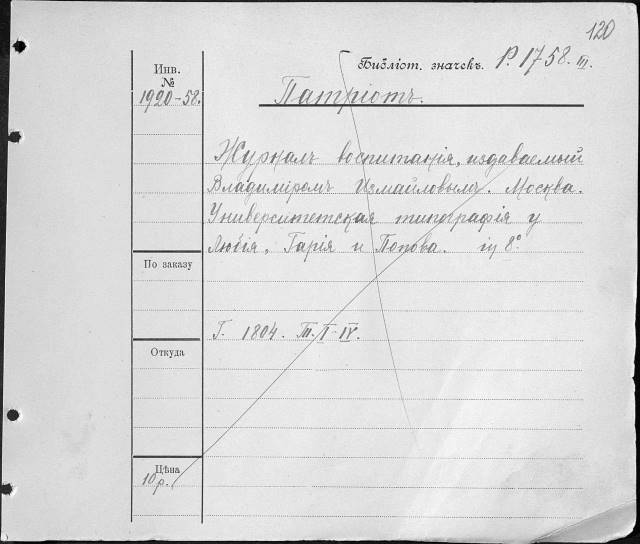 120
Библіот. значекъ. Р. 1758. III.
Инв.
№
1920-58.
Патріотъ.
Журналъ воспитанія, издаваемый
Владиміромъ Измайловымъ. Москва.
Университетская типографія у
Любія, Гарія и Попова. in 8°
По заказу
Г. 1804. Т. I-IV.
Откуда
Цѣна
10 р.